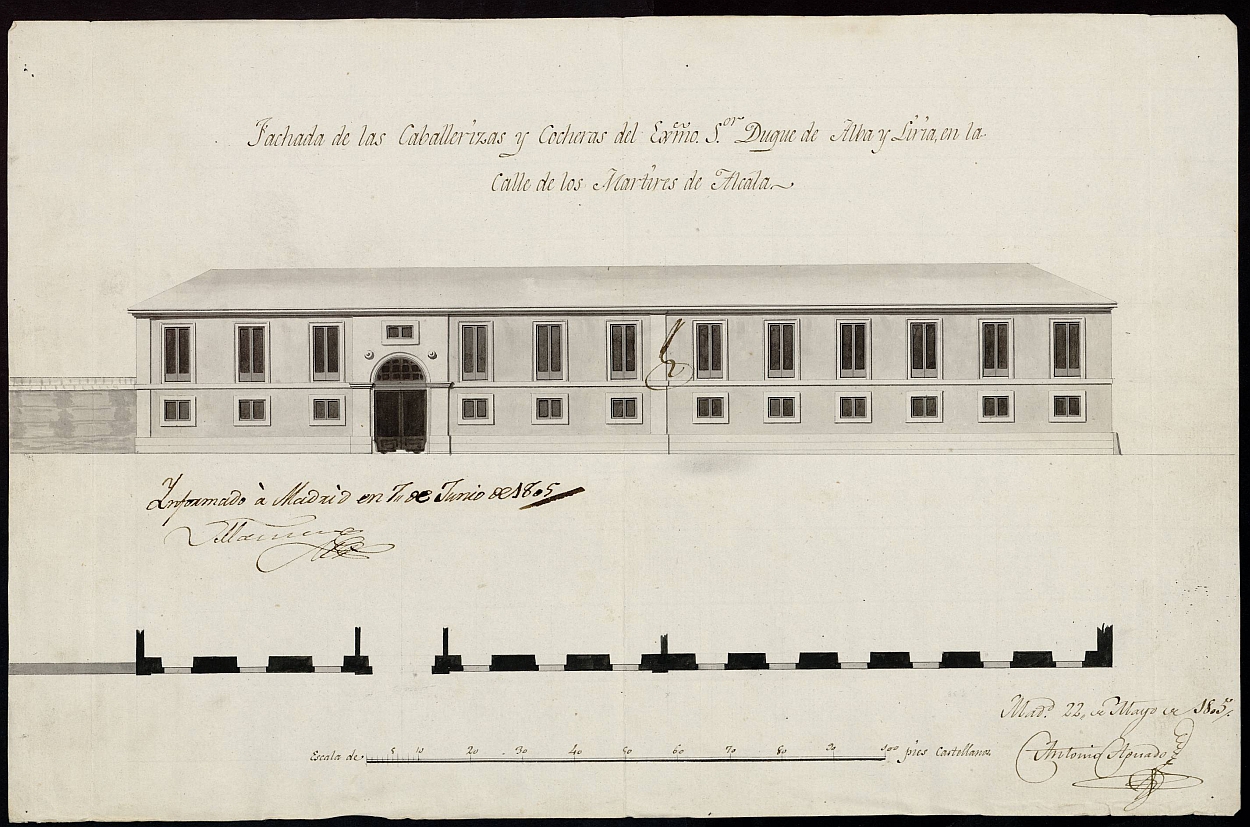 Fachada de las Caballerizas y Cocheras del Exm̃o. S.or Duque de Alba y Liria, en la
Calle de los Martires de Alcala.
Informado à Madrid en 7,, de Junio de 1805
Escala de 5 10 20 30 40 50 60 70 80 90 100 pies Castellanos
Mad.d 22, de Mayo de 1805.
Antonio Aguado